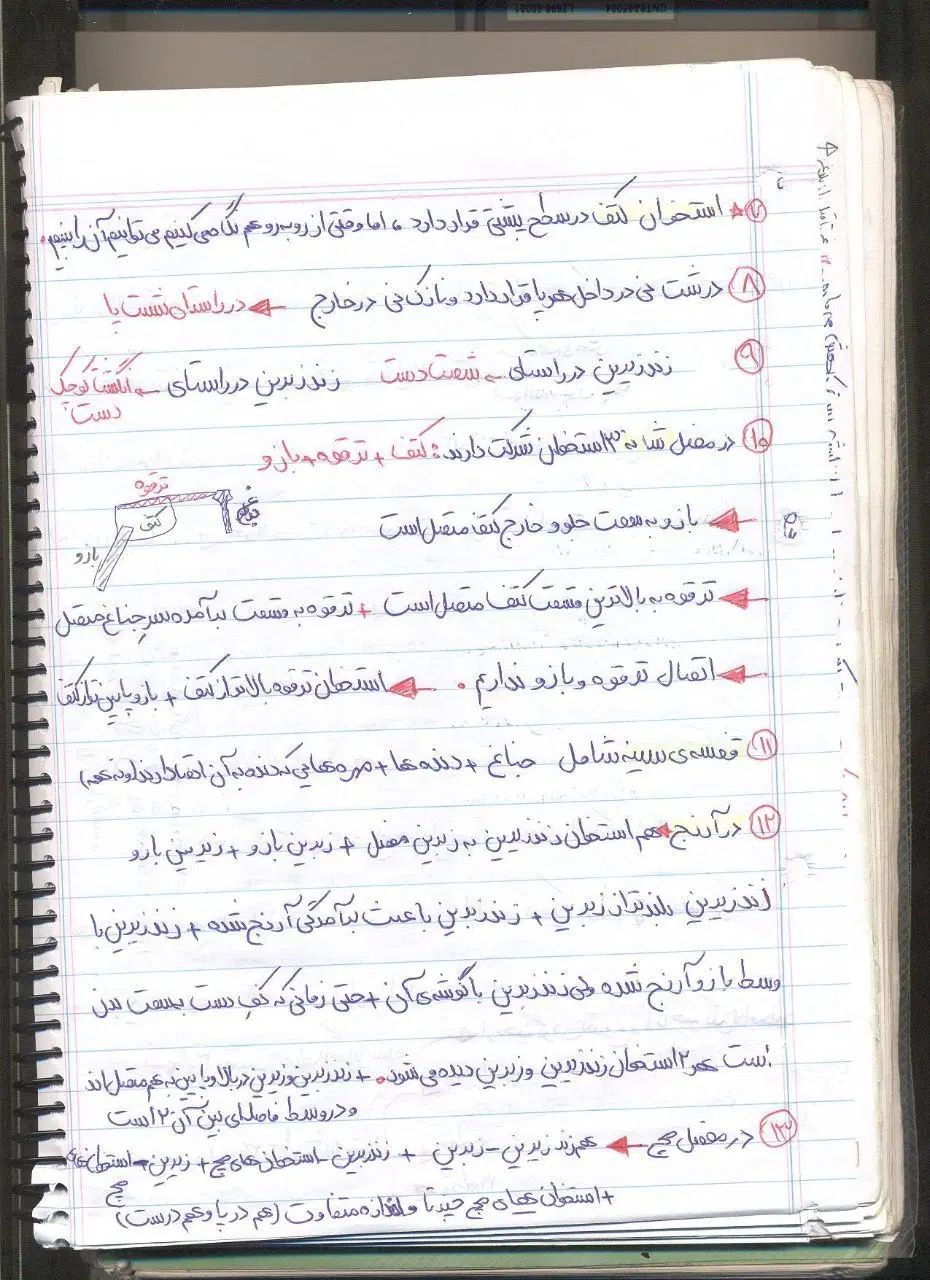 ۷ استخوان کتف در سطح پشتی قرار دارد، اما وقتی از روبه‌رو هم نگاه می‌کنیم می‌توانیم آن را ببینیم.
۸ درشت نی در داخل هر پا قرار دارد و نازک نی در خارج ← در راستای شست پا
۹ زند زبرین در راستای ← شصت دست زند زیرین در راستای ← انگشت کوچک
دست
۱۰ در مفصل شانه ۳ استخوان شرکت دارند: کتف + ترقوه + بازو
ترقوه
کتف
جناغ
بازو
← بازو به سمت جلو و خارج کتف متصل است
← ترقوه به بالاترین قسمت کتف متصل است + ترقوه به قسمت برآمده سر جناغ متصل
← اتصال ترقوه و بازو نداریم. ← استخوان ترقوه بالاتر از کتف + بازو پایین‌تر از کتف
۱۱ قفسه‌ی سینه شامل جناغ + دنده‌ها + مهره‌هایی که دنده به آن اتصال دارند (و نه همه)
۱۲ در آرنج ← هم استخوان زند زیرین به زبرین مفصل + زبرین بازو + زیرین بازو
زند زیرین بلندتر از زبرین + زند زیرین باعث برآمدگی آرنج شده + زند زیرین با
وسط بازو آرنج شده ولی زند زبرین با گوشه‌ی آن + حتی زمانی که کف دست به سمت بدن
است هر ۲ استخوان زند زیرین و زبرین دیده می‌شود. + زند زبرین و زیرین در بالا و پایین به هم متصل‌اند
و در وسط فاصله‌ای بین آن ۲ است
۱۳ در مفصل مچ ← هم زند زیرین - زبرین + زند زیرین - استخوان‌های مچ + زبرین - استخوان‌های
مچ
+ استخوان‌های مچ چند تا و اندازه متفاوت (هم در پا و هم در دست)